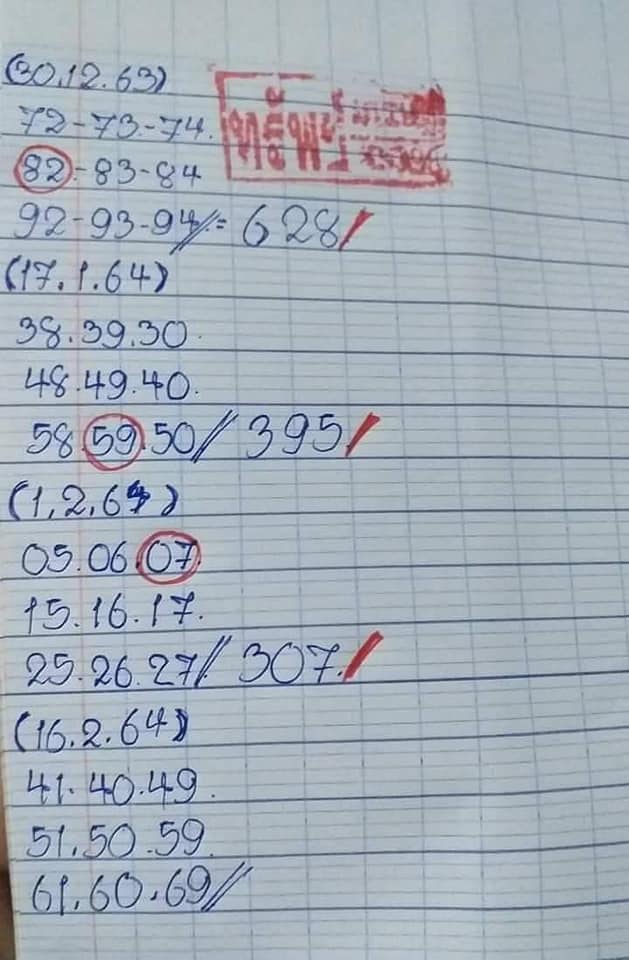 (30.12.63)
72-73-74.
82-83-84
92-93-94//= 628/
(17.1.64)
38.39.30.
48.49.40.
58.59.50// 395/
(1.2.64)
05.06.07
15.16.17.
25.26.27// 307./
(16.2.64)
41.40.49.
51.50.59.
61.60.69//